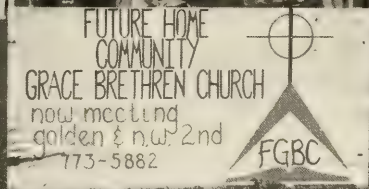 FUTURE HOME
COMMUNITY
GRACE BRETHREN CHURCH
now meeting
golden & n.w. 2nd
773-5882
FGBC